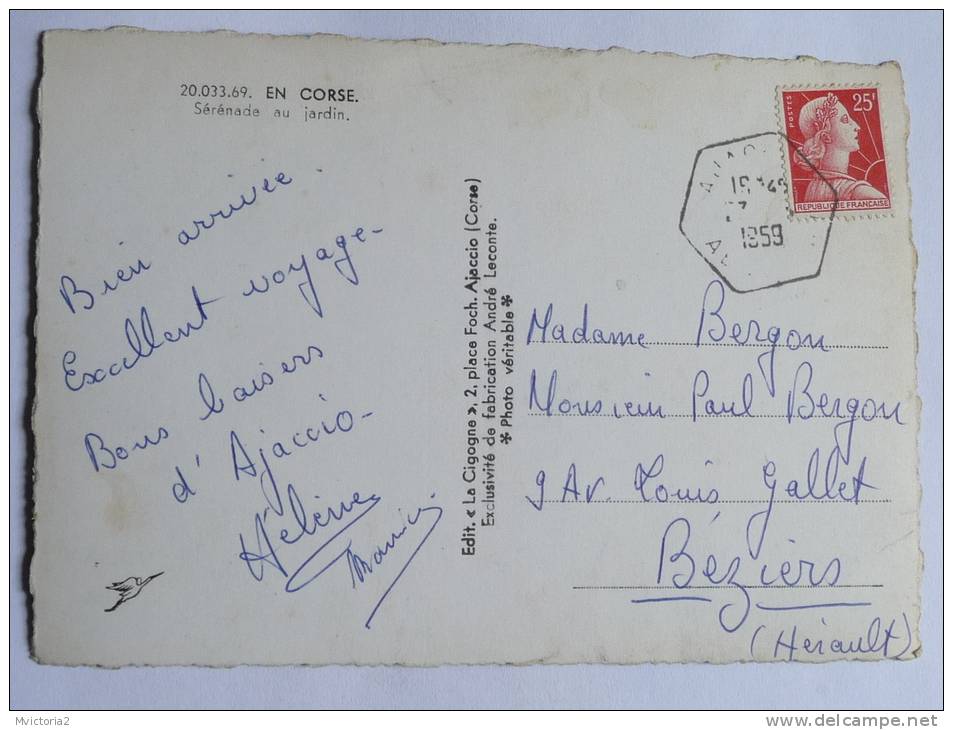 20.033.69. EN CORSE.
Sérénade au jardin.
Bien arrivée.
Excellent voyage-
Bons baisers
d'Ajaccio-
Hélène
Edit. « La Cigogne », 2, place Foch. Ajaccio (Corse)
Exclusivité de fabrication André Leconte.
* Photo véritable *
POSTES
25F
REPUBLIQUE FRANÇAISE
1959
Madame Bergon
Monsieur Paul Bergon
9 Av. Louis Gallet
Béziers
(Hérault)
Mvictoria2
www.delcampe.net